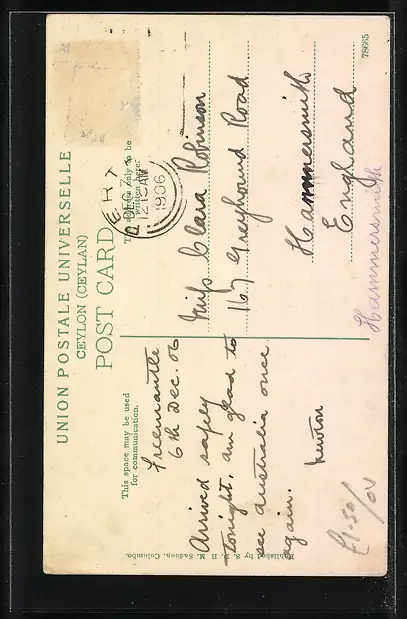 UNION POSTALE UNIVERSELLE
CEYLON (CEYLAN)
POST CARD
This space may be used
for communication.
The address only to be
written here.
PERT
DEC 7
12 15 AM
1906
Freemantle
6th Dec. 06
Arrived safely
tonight, am glad to
see australia once
again.
Newton
Miss Clara Robinson
167 Greyhound Road
Hammersmith
England
Hammersmith
78665
£1.50/
Published by S. D. H. M. Sadoon, Colombo.